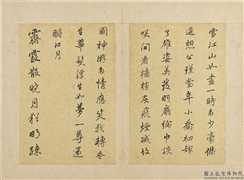 雪江山如畫一時多少豪傑
遙想公瑾當年小喬初嫁
了雄姿英發羽扇綸巾談
咲間檣灰飛煙滅故
國神游多情應笑我
生華髮浮生如夢一尊還
酹江月
霽霞散曉月猶明疎